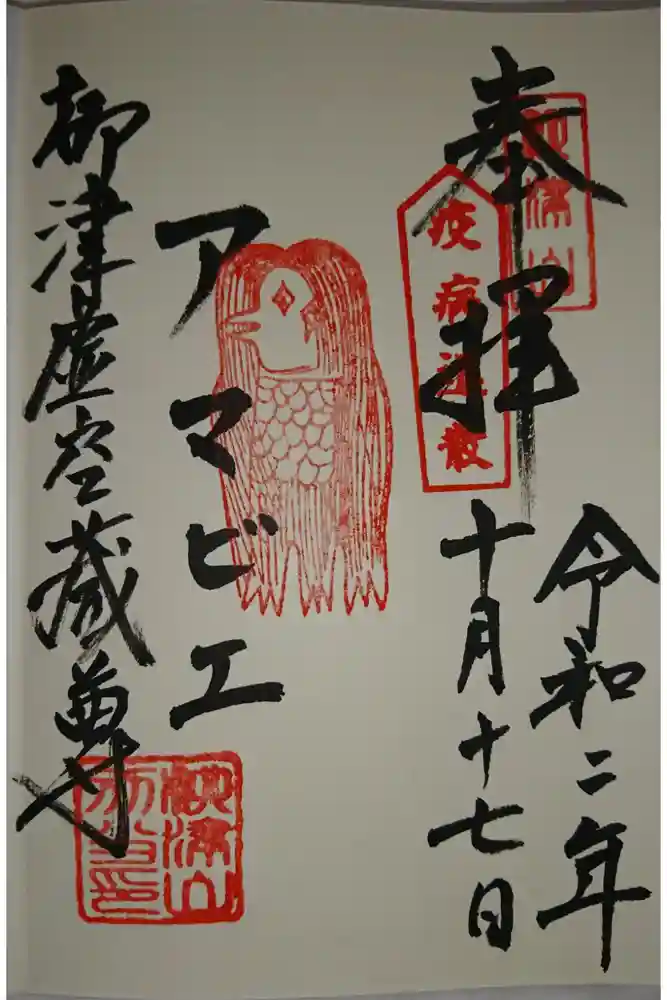 奉拝
疫病退散
令和二年
十月十七日
アマビエ
柳津虚空蔵尊